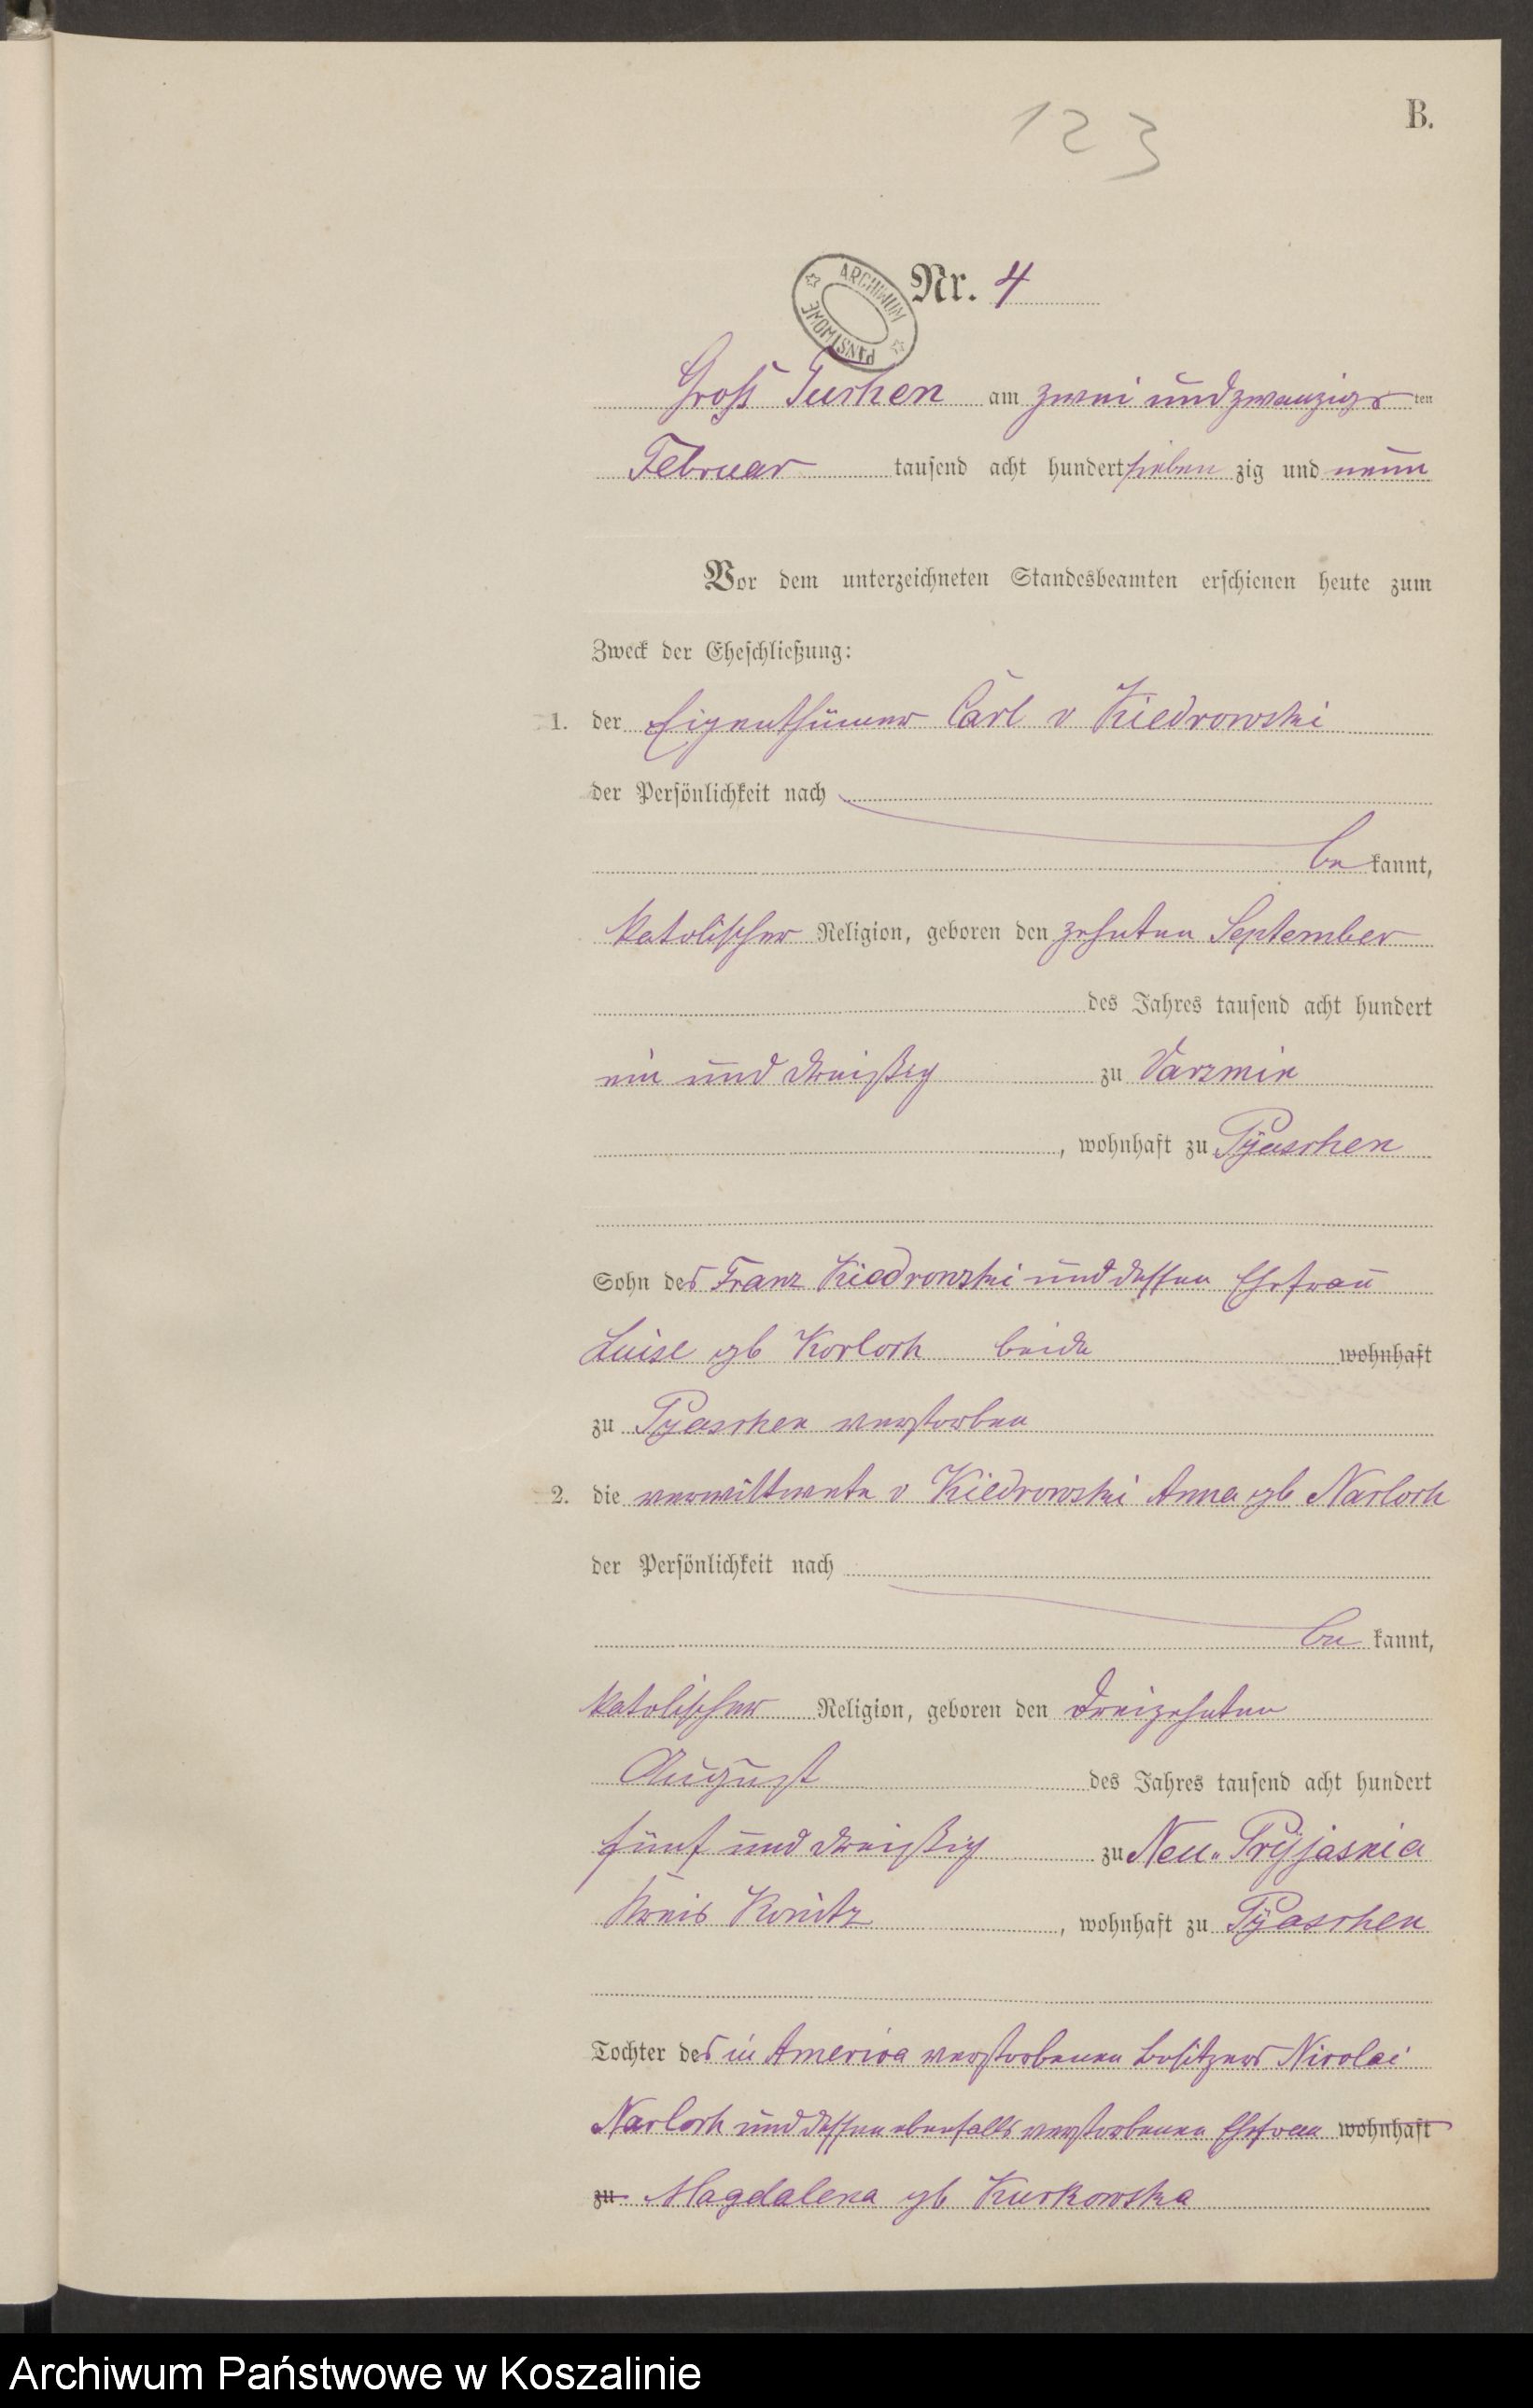 123
B.
ARCHIWUM PAŃSTWOWE
Nr. 4
Groß Tuchen am zwei und zwanzigs ten
Februar tausend acht hundert sieben zig und neun
Vor dem unterzeichneten Standesbeamten erschienen heute zum
Zweck der Eheschließung:
1. der Eigenthümer Carl v Kiedrowski
der Persönlichkeit nach
be kannt,
katolischer Religion, geboren den zehnten September
des Jahres tausend acht hundert
ein und dreißig zu
, wohnhaft zu Pyaschen
Sohn des Franz Kiedrowski und dessen Ehefrau
Luise gb beide wohnhaft
zu Pyaschen verstorben
2. die verwittwete v Kiedrowski Anna gb Narloch
der Persönlichkeit nach
be kannt,
katolischer Religion, geboren den dreizehnten
August des Jahres tausend acht hundert
fünf und dreißig zu Neu-
Kreis Konitz , wohnhaft zu Pyaschen
Tochter des in America verstorbenen Besitzers Nicolai
Narloch und dessen ebenfalls verstorbenen Ehefrau wohnhaft
zu Magdalena gb Kurkowska
Archiwum Państwowe w Koszalinie